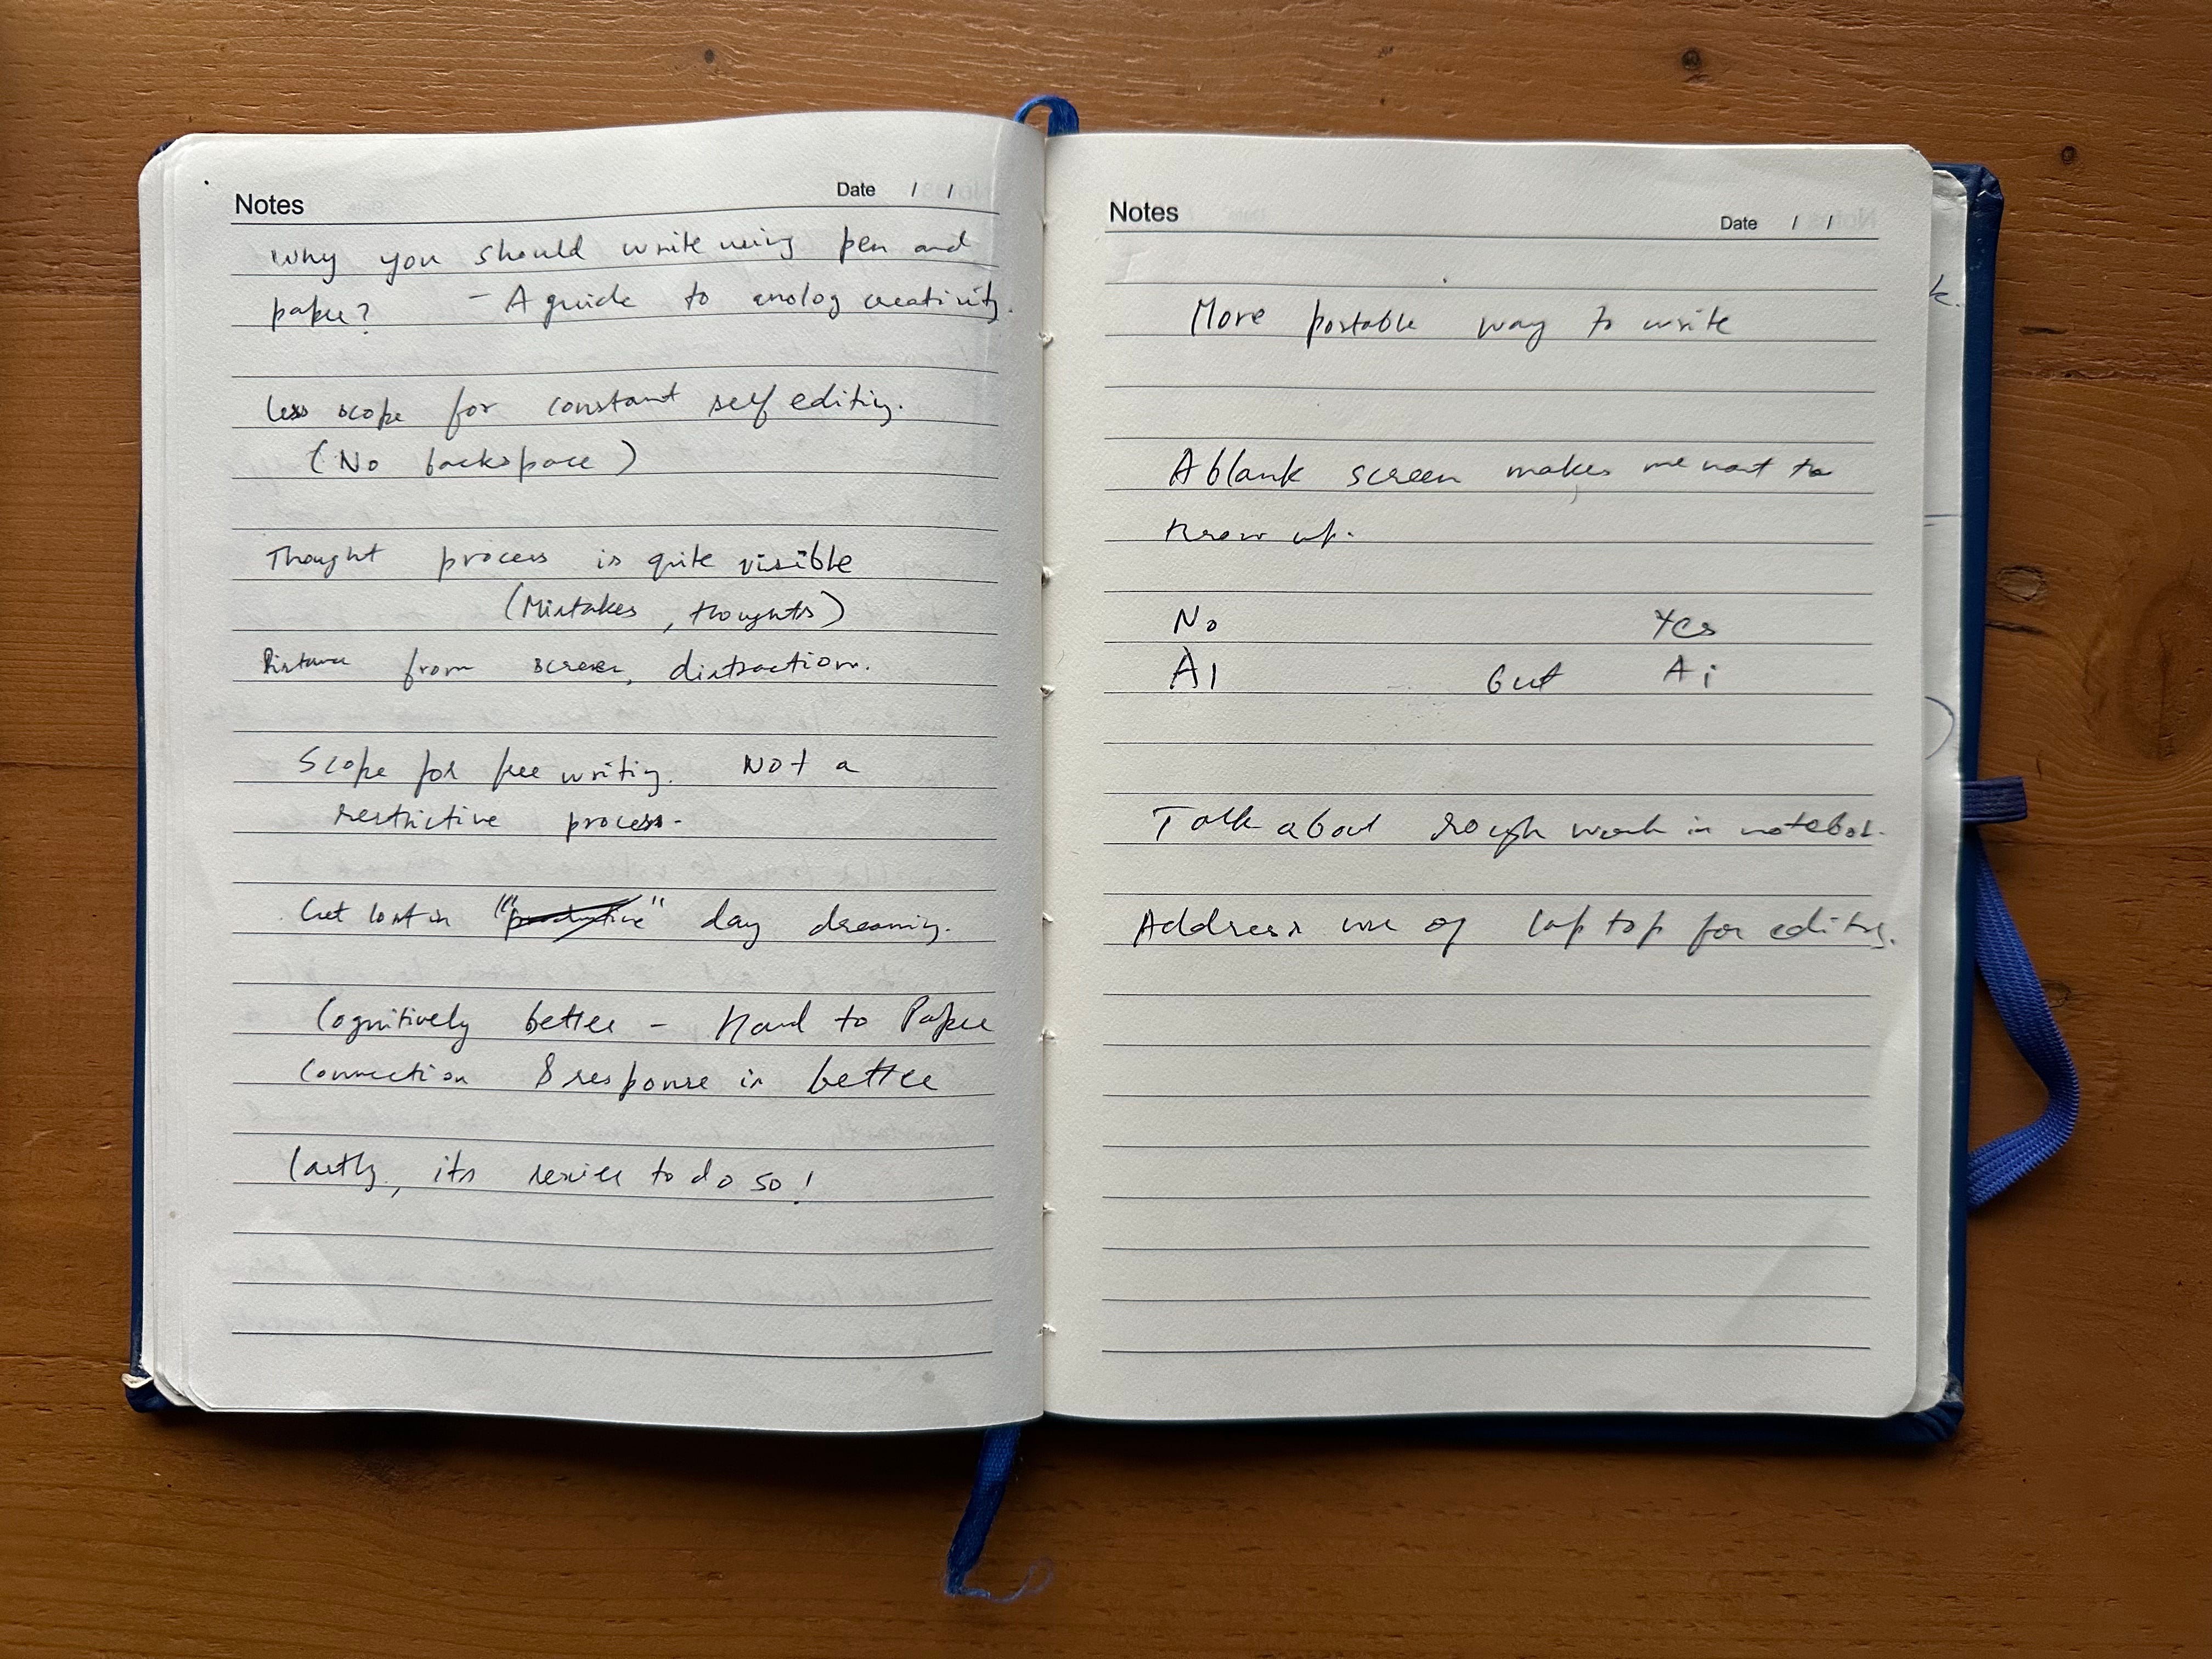 Notes
Date / /
Why you should write using pen and
paper? - A guide to analog creativity.
less scope for constant self editing.
(No backspace)
Thought process is quite visible
(Mistakes, thoughts)
Distance from screen, distraction.
Scope for free writing. Not a
restrictive process.
Get lost in "productive" day dreaming.
Cognitively better - Hand to Paper
connection & response is better
lastly, its sexier to do so!
Notes
Date / /
More portable way to write
A blank screen makes me want to
throw up.
No Yes
AI but Ai
Talk about rough work in notebook.
Address use of laptop for editing.
k.